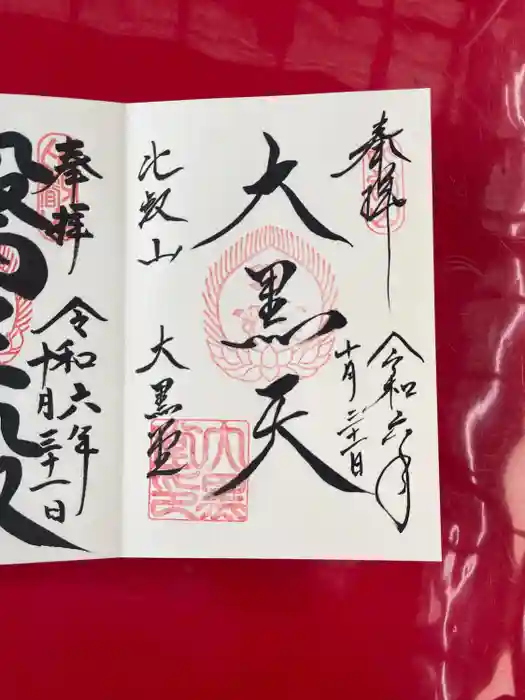 奉拝
令和六年
十月三十一日
大黒天
比叡山
大黒堂
奉拝
令和六年
十月三十一日